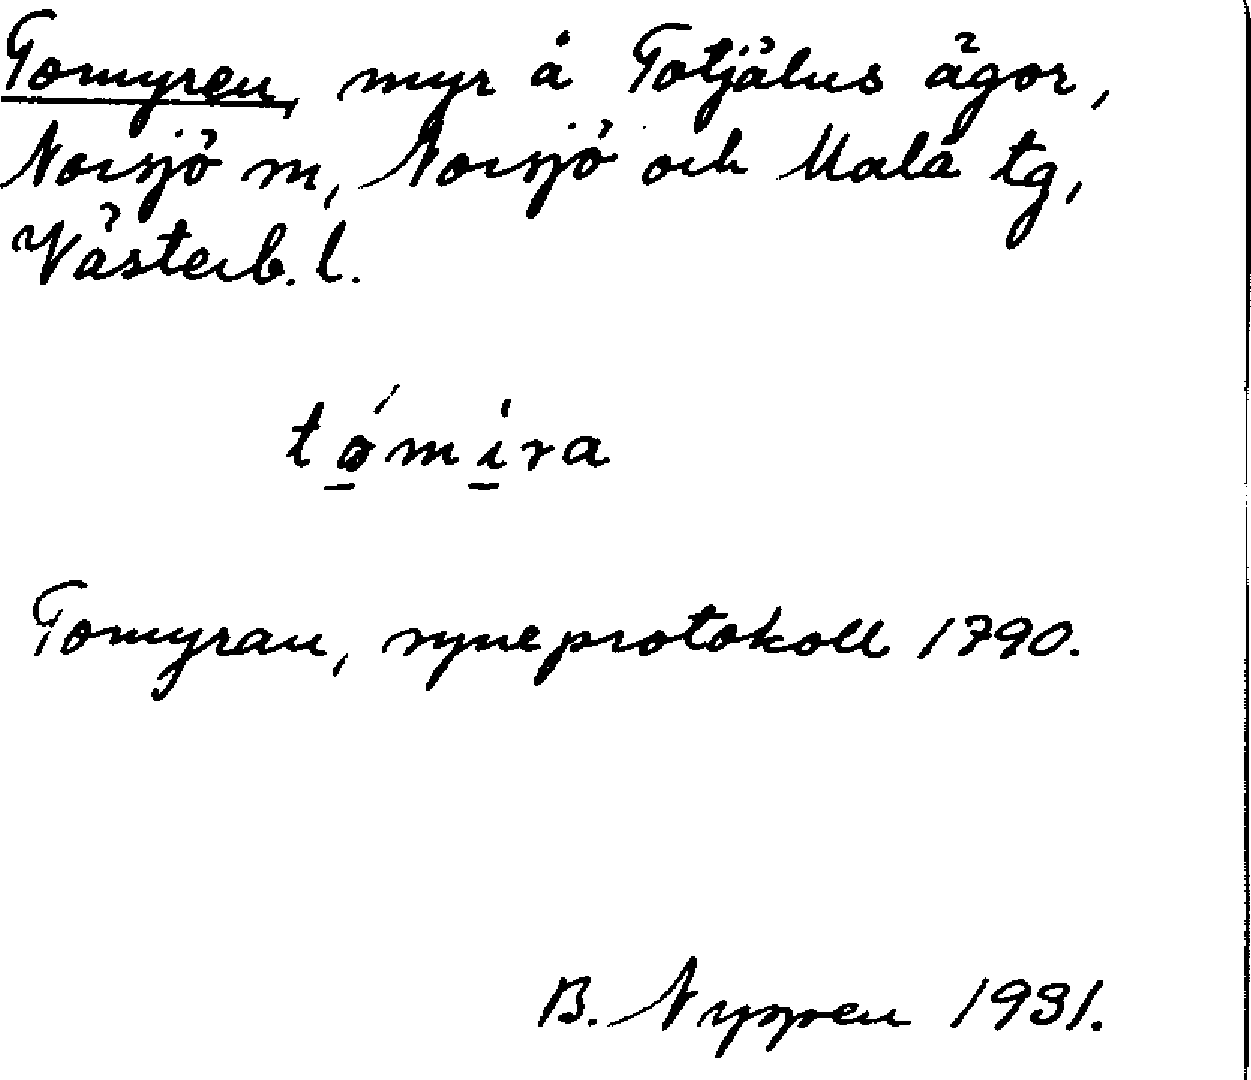 Tomyren, myr å Totjälns ägor,
Norsjö m, Norsjö och Malå tg,
Västerb. l.
tǿmi̱ra
Tomyran, syneprotokoll 1790.
B. 1931.